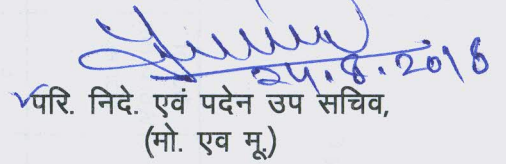 24.8.2018
परि. निदे. एवं पदेन उप सचिव,
(मो. एव मू.)